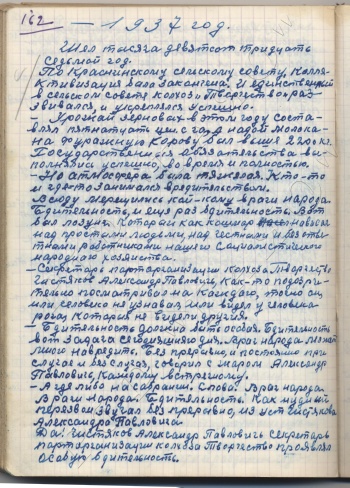 162
— 1937 год.
Шел тысяча девятсот тридцать
седьмой год.
По Краснинскому сельскому совету, колле-
ктивизация была закончена. И единственный
в сельском совете колхоз Творчество раз-
звивался, и укреплялся успешно.
- Урожай зерновых в этом году соста-
влял пятнатцать цен. с га. А надой молока-
на фуражную корову был выше 2100 кг.
Государственные обязательства вы-
полнялись успешно, во время и полностью.
- Но атмосфера была тяжелая. Кто-то
и где-то занимался вредительством.
Всюду мерещились кай-кому враги народа.
Бдительность, и еще раз бдительность. Вот
был лозунг. Который как кошмар
над простыми людьми, над честными и
работниками нашего социалистического
народного хозяйства.
- Секретарь парторганизации колхоза Творчество
Чистяков Александр Павлович, как-то подозри-
тельно посматривал на каждого, точно он,
или человека не узнавал, или видел у человека
рога, которых не видели другия.
- Бдительность должна быть особая. Бдительность
вот задача сегодняшнего дня. Враг народа может
много навредить. Без прерывно, и постоянно при
случае и без случая, говорил с жаром Александр
Павлович, каждому встречному.
- А где либо на собрании. Слова: Враг народа.
Враги народа. Бдительность. Как нудный
перезвон звучал без прерывно, из уст Чистякова
Александра Павловича.
Да! Чистяков Александр Павловичь секретарь
парторганизации колхоза Творчество проявлял
особую бдительность.